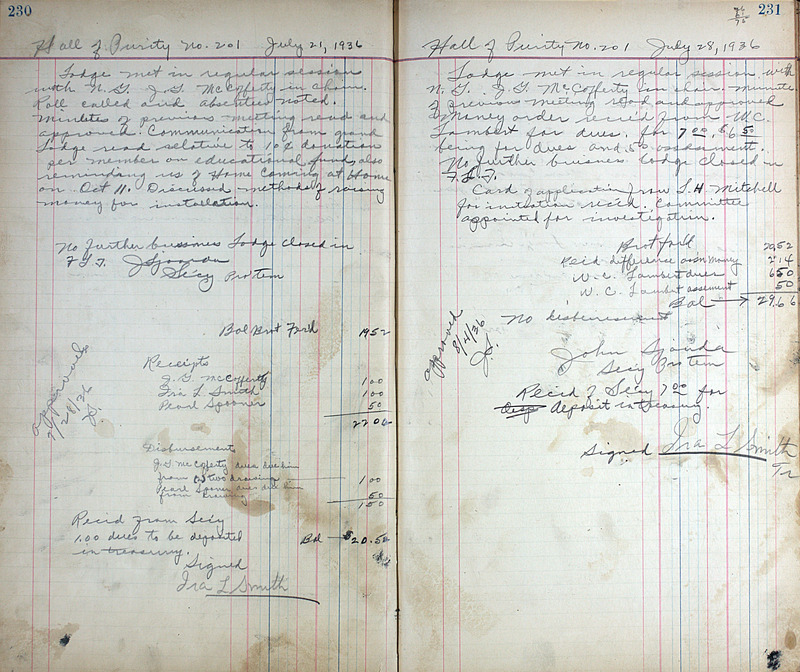 230
Hall of Purity No. 201 July 21, 1936
Lodge met in regular session
with N.G. J.G. McCofferty in chair.
Roll called and absentees noted.
Minutes of previous meeting read and
approved. Communication from grand
Lodge read relative to 10¢ donation
per member on educational fund, also
reminding us of Home Coming at Home
on Oct 11. Discussed methods of raising
money for installation.
No further business Lodge closed in
F.L.T.
Sec'y Protem
Bal Brot Forld 1952
approved
7/28/36
Receipts
J. G. McCofferty 1 00
Ira L. Smith 1 00
Pearl Spooner 50
2202
Disbursement
J G McCofferty dues due him
from two drawing 1 00
Pearl Spooner dues due him 50
from drawing
1 50
Recid from Sec'y
1.00 dues to be deposited Bal $20.52
in treasury.
Signed
Ira L Smith
231
Hall of Purity No. 201 July 28, 1936
Lodge met in regular session with
N.G. J.G. McCofferty in chair. Minutes
of previous meeting read and approved
Money order recid from W.C.
Lambert for dues, for 7 00 $6 50
being for dues and 50 assessment.
No further business lodge closed in
F.L.T.
Card of application from L.H. Mitchell
for initiation rec'd. Committee
appointed for investigation.
Brot Forld 2052
Recid difference on money 214
W.C. Lambert dues 650
W.C. Lambert assement 50
Bal 2966
No disbursement
approved
8/4/36
John
Sec'y Protem
Recid of Sec'y 7 00 for
deposit in treasury.
Signed Ira L Smith
Tr